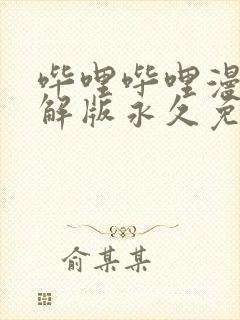 哔哩哔哩漫
解版永久免
俞某某